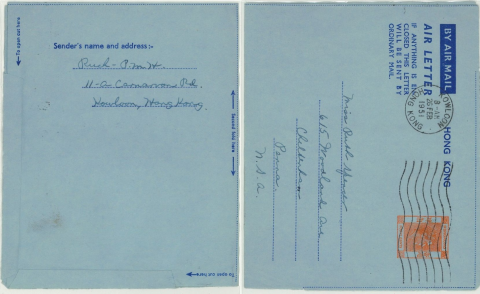 To open cut here
Sender's name and address :-
11-A Carnarvon Rd.
Kowloon, Hong Kong.
Second fold here
To open cut here
BY AIR MAIL
AIR LETTER
HONG KONG
IF ANYTHING IS ENCLOSED THIS LETTER
WILL BE SENT BY
ORDINARY MAIL.
KOWLOON
8 - AM
26 FEB
1951
HONG KONG
Miss Ruth
615 Woodlawn Ave
Cheltenham
Penna.
U.S.A.